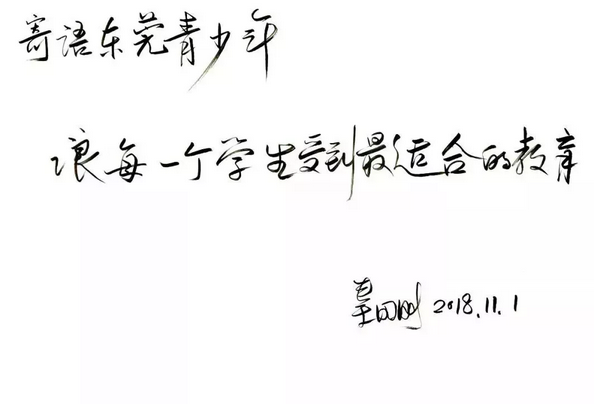 寄语东莞青少年
每一个学生受到最适合的教育
2018.11.1